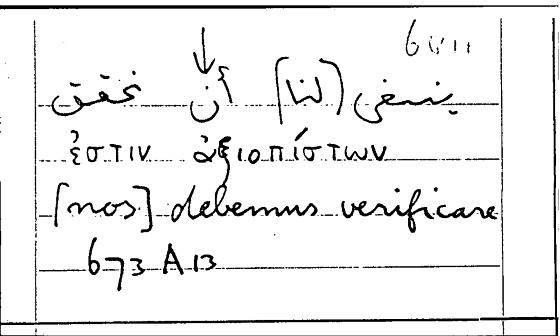 ينبغى (لنا) أن نحقق
ἐστιν ἀξιοπίστων
[nos] debemus verificare
673 A 13